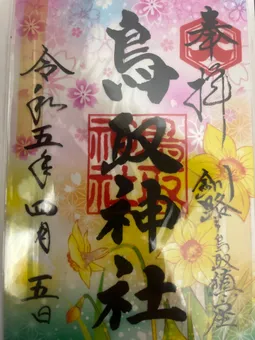 奉拝
釧路之鳥取鎮座
鳥取神社
鳥取
神社
令和五年四月五日